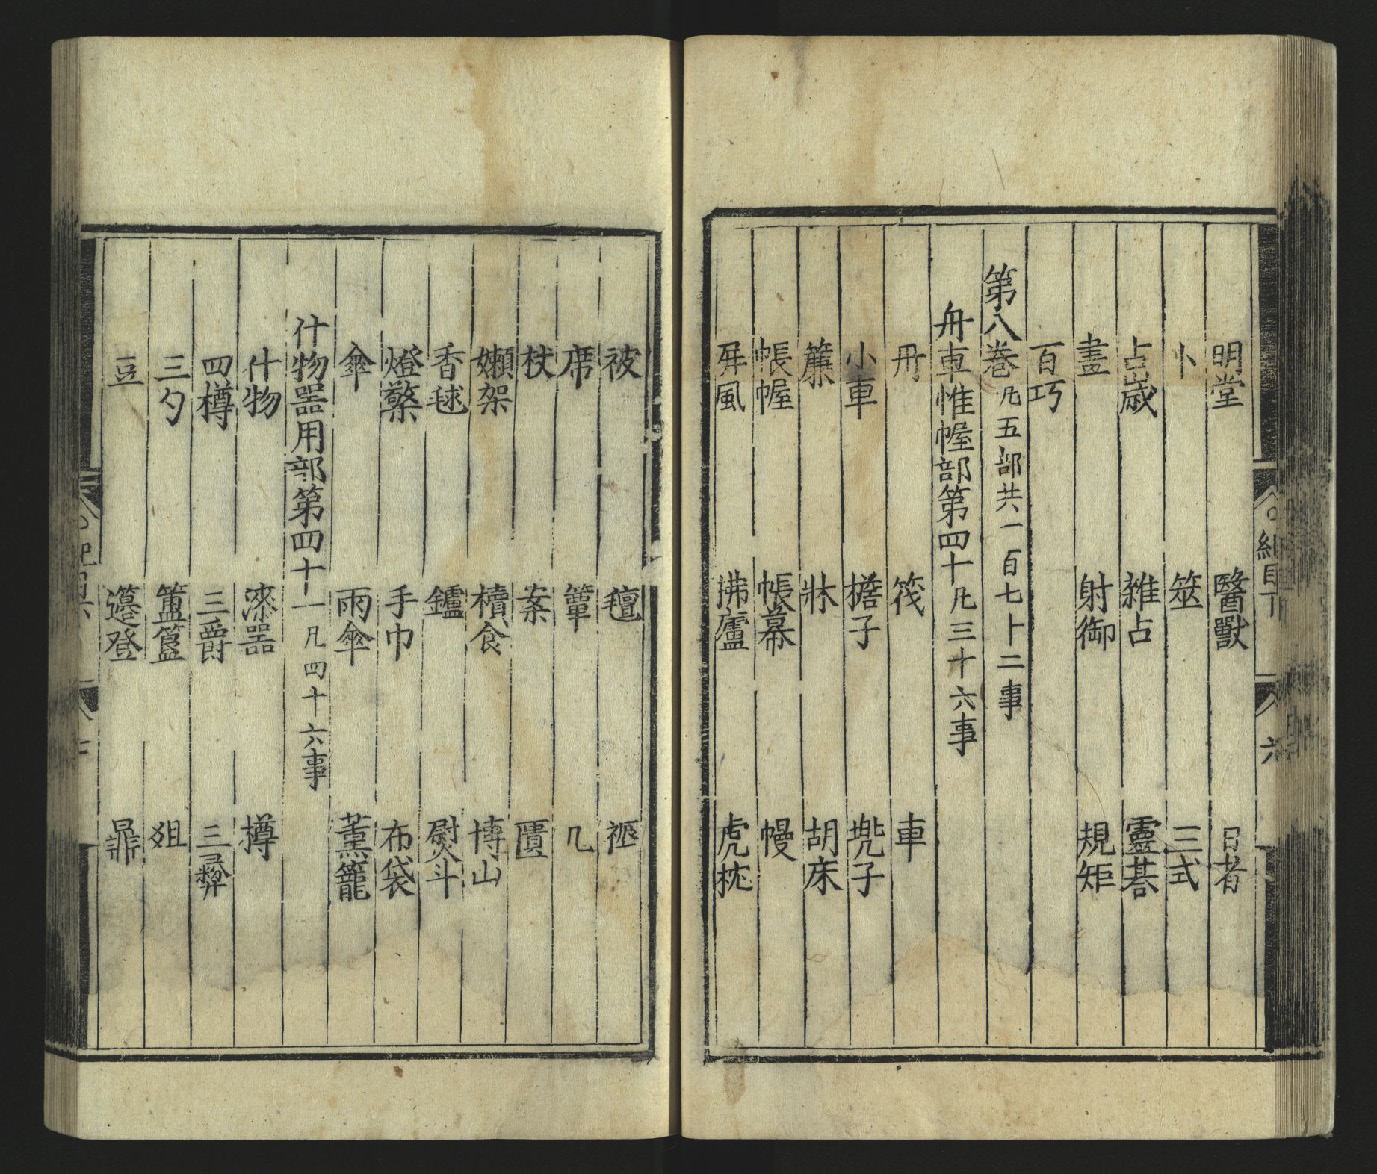 明堂 醫獸 日者
卜 筮 三式
占歲 雜占 靈棊
畫 射御 規矩
百巧
第八卷凡五部共一百七十二事
舟車帷幄部第四十凡三十六事
舟 筏 車
小車 檐子 兠子
簾 牀 胡床
帳幄 帳幕 幔
屏風 拂廬 虎枕
被 氊
席 簟 几
杖 案 匱
嬾架 櫝食 博山
香毬 鑪 熨斗
燈檠 手巾 布袋
傘 雨傘 薰籠
什物器用部第四十一凡四十六事
什物 漆器 樽
四樽 三爵 三彛
三勺 簠簋 俎
豆 籩登 鼎